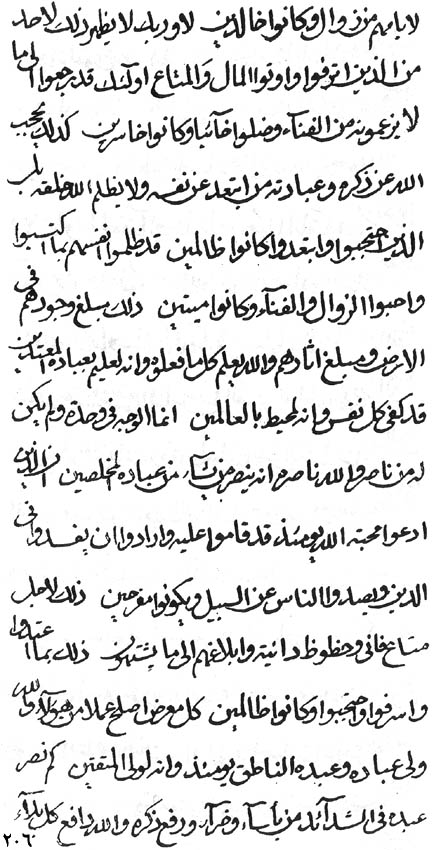 لايامهم من زوال وكانوا خالدين لا وربك لا يظهر ذلك لاحد
من الذين اترفوا واوتوا المال والمتاع اولئك قد رجعوا الى ما
لا يزعمونه من الفنآء وضلوا خآئبا وكانوا خاسرين كذلك يحجب
الله عن ذكره وعبادته من ابتعد عن نفسه ولا يظلم الله خلقه بل
الذين احتجبوا وابتعدوا كانوا ظالمين قد ظلموا انفسهم بما اكتسبوا
واحبوا الزوال والفنآء وكانوا ميتين ذلك مبلغ وجودهم في
الارض ومبلغ اثارهم والله يعلم كل ما فعلوه وانه لعليم بعباده المعتدين
قد كفى كل نفس وانه لمحيط بالعالمين انما الوجه في وحدة ولم يكن
له من ناصر والله ناصره انه ينصر من يشآء من عباده المخلصين ان الذين
ادعوا محبة الله يومئذ قد قاموا عليه وارادوا ان يفسدوا في
الدين ويصدوا الناس عن السبيل ويكونوا مفرحين ذلك لاجل
متاع فاني وحظوظ دانية وابلاغهم الى ما يشتهون ذلك بما اعتدوا
واسرفوا واحتجبوا وكانوا ظالمين كل معرض اصلح عملا من هؤلآء والله
ولي عباده وعبده الناطق يومئذ وانه لولي المتقين كم نصر
عبده في الشدآئد من بأسآء وضرآء ورفع ذكره والله دافع كل بلآء
٢٠٦